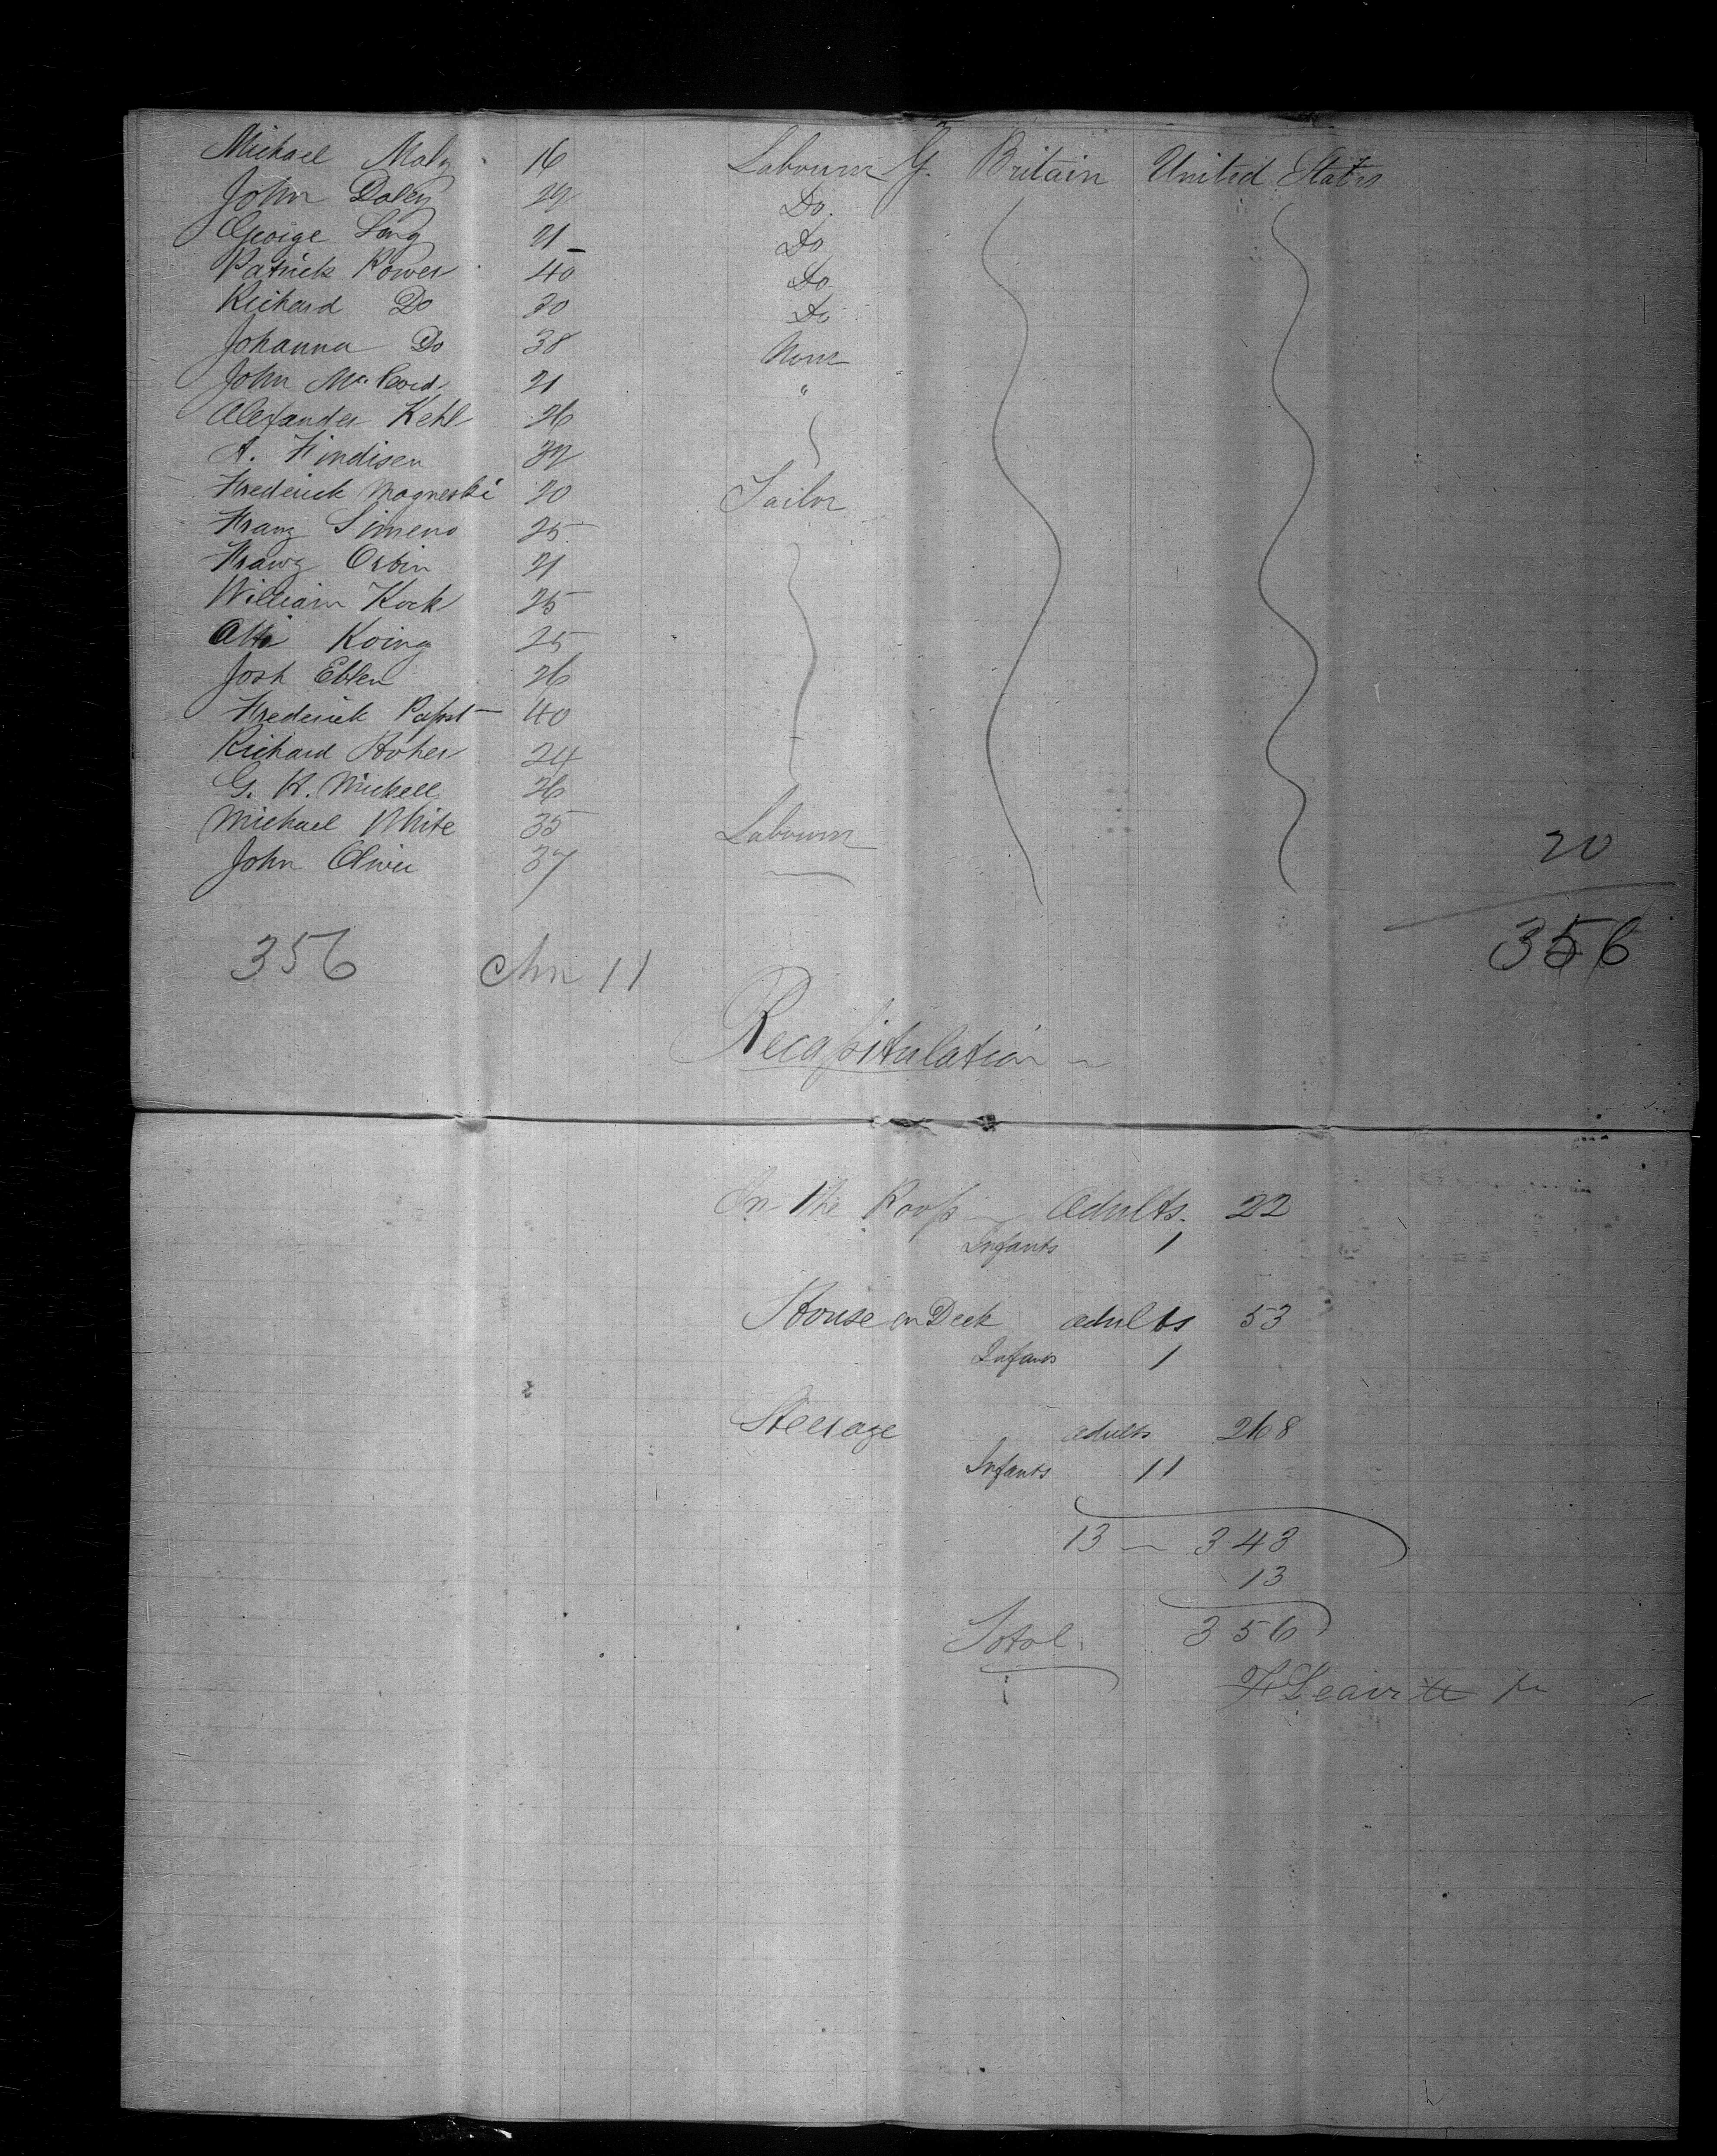 Michael Maly 16 Labourer G. Britain United States
John Daley 22 Do.
George Long 21 Do
Patrick Power 40 Do
Richard Do 20 Do
Johanna Do 38 None
John McCord 21 "
Alexander Kehl 26
A. Findisen 32
Frederick Magneski 20 Sailor
Franz Simeno 25
Franz Orbin 21
William Kock 25
Otto Koing 25
Josh Eblen 26
Frederick Papst 40
Richard Hoher 24
G. K. Mickell 26
Michael White 35 Labourer
John Oliver 37
20
356 11 356
Recapitulation
In the Poop Adults. 22
Infants 1
House on Deck adults 53
Infants 1
Steerage adults 268
Infants 11
13 — 343
13
Total. 356